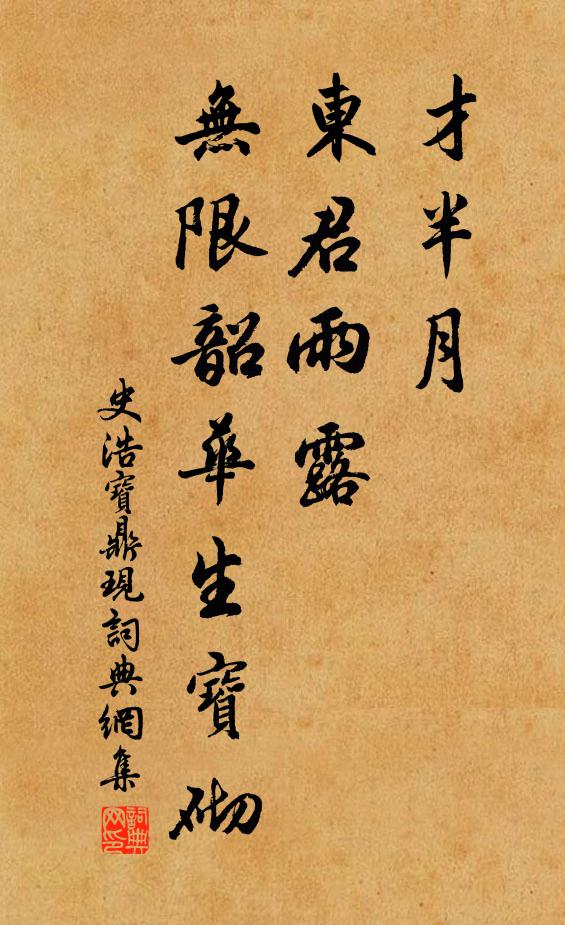 才半月
東君雨露
無限韶華生寶砌
史浩寶鼎現詞典網集
詞典網印